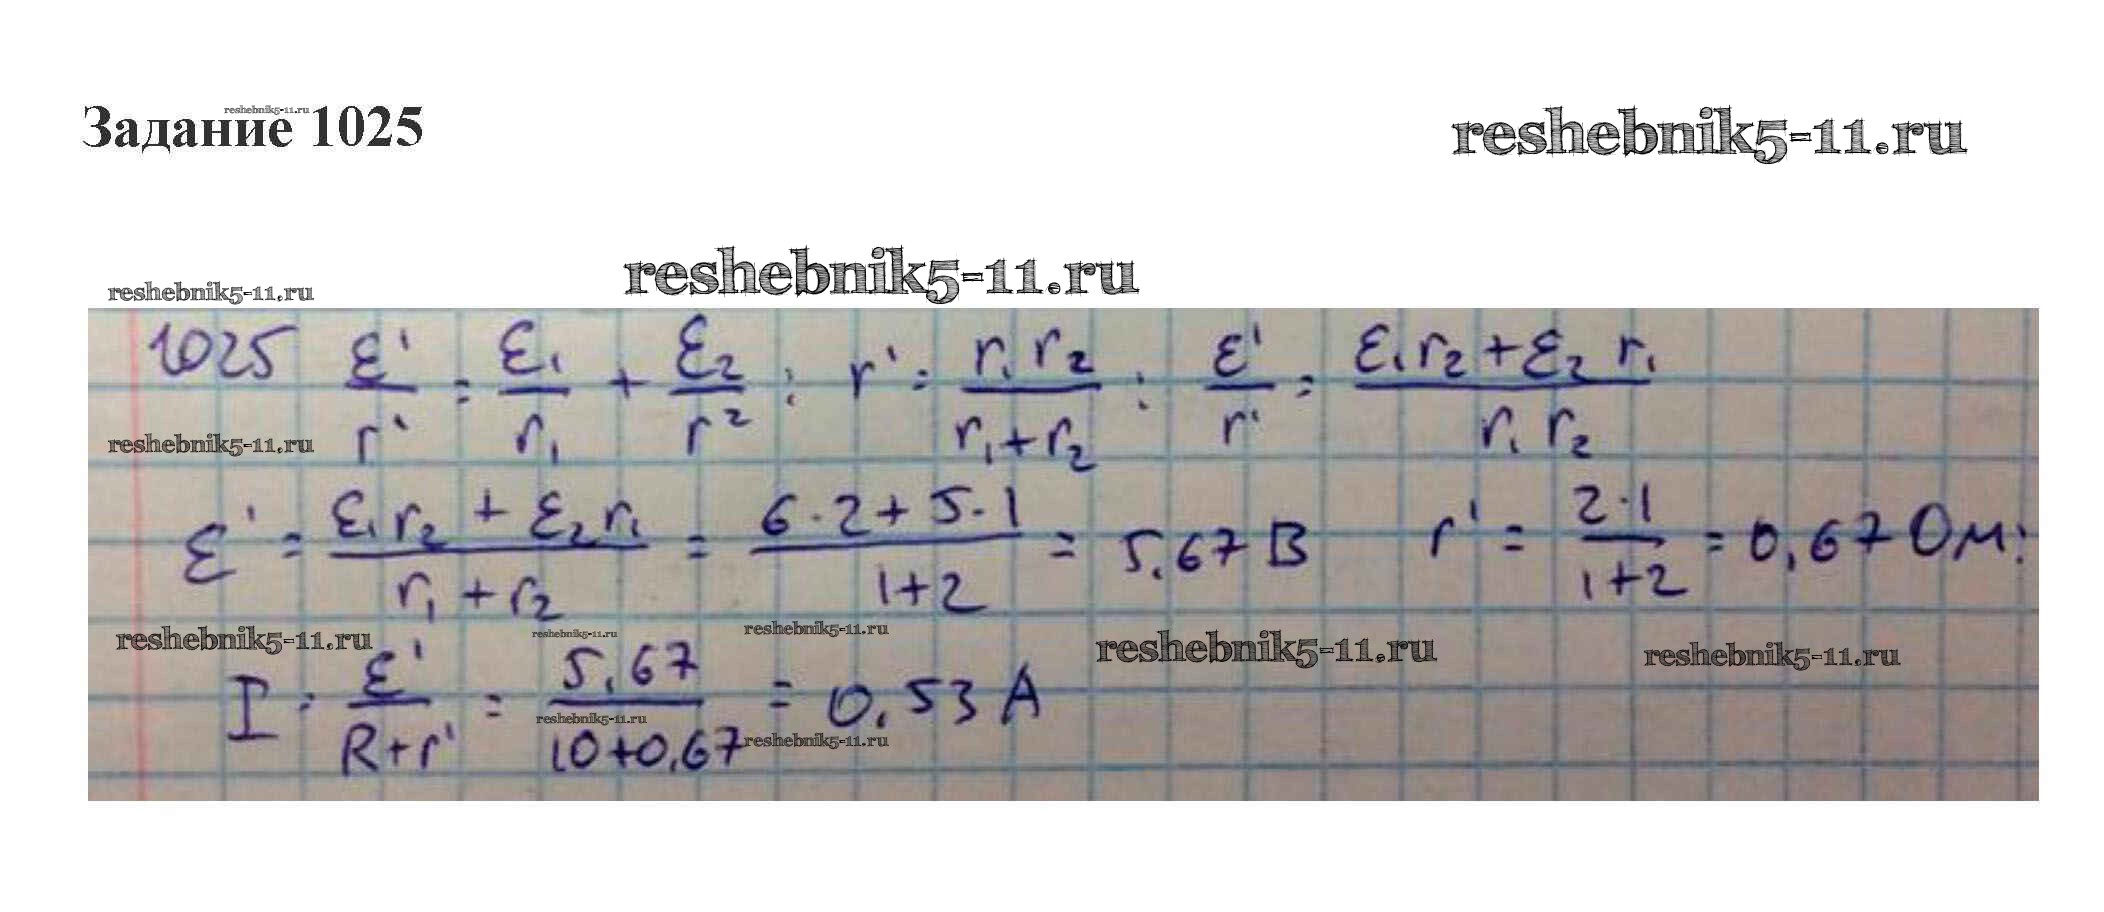 reshebnik5-11.ru
Задание 1025
reshebnik5-11.ru
reshebnik5-11.ru
reshebnik5-11.ru
1025 ε'/r' = ε₁/r₁ + ε₂/r² ; r' = r₁ r₂/(r₁+r₂) ; ε'/r' = (ε₁r₂+ε₂ r₁)/(r₁ r₂)
reshebnik5-11.ru
ε' = (ε₁r₂ + ε₂r₁)/(r₁+r₂) = (6·2+5·1)/(1+2) = 5,67 В r' = (2·1)/(1+2) = 0,67 Ом;
reshebnik5-11.ru reshebnik5-11.ru reshebnik5-11.ru reshebnik5-11.ru reshebnik5-11.ru
I = ε'/(R+r') = 5,67/(10+0,67) = 0,53 А
reshebnik5-11.ru reshebnik5-11.ru